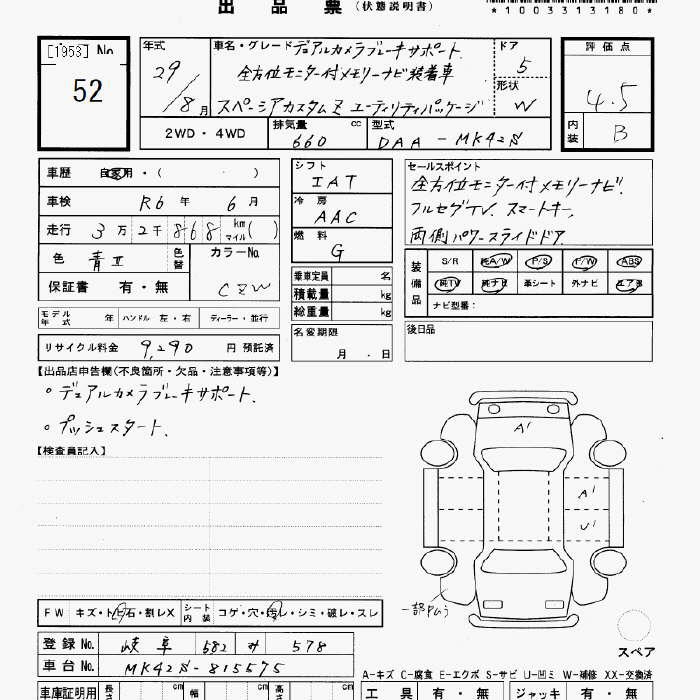 出品票(状態説明書)
*1003313180*
[1953] No
52
年式 29/8月
車名・グレード デュアルカメラブレーキサポート
全方位モニター付メモリーナビ装着車
スペーシアカスタムZ ユーティリティパッケージ
ドア 5
形状 W
2WD・4WD
排気量 660 cc
型式 DAA-MK42S
評価点 4.5
内装 B
車歴 自家用・( )
車検 R6年 6月
走行 3万2千868 km マイル( )
色 青II 色替
カラーNo. CZW
保証書 有・無
シフト IAT
冷房 AAC
燃料 G
乗車定員 名
積載量 kg
総重量 kg
セールスポイント
全方位モニター付メモリーナビ.
フルセグTV. スマートキー.
両側パワースライドドア.
装備品 S/R 純A/W P/S P/W ABS
純TV 純ナビ 革シート 外ナビ エアB
ナビ型番:
モデル年式 年 ハンドル 左・右 ディーラー・並行
リサイクル料金 9,290 円 預託済
名変期限 月・日
後日品
【出品店申告欄(不良箇所・欠品・注意事項等)】
・デュアルカメラブレーキサポート.
・プッシュスタート.
【検査員記入】
A1
A1
U1
一部中ムラ
スペア
FW キズ・トビ石・割レX
シート内装 コゲ・穴・汚レ・シミ・破レ・スレ
登録No. 岐阜 582 み 578
車台No. MK42S-815575
A-キズ C-腐食 E-エクボ S-サビ U-凹ミ W-補修 XX-交換済
車庫証明用 長さ cm 幅 cm 高さ cm
工具 有・無 ジャッキ 有・無